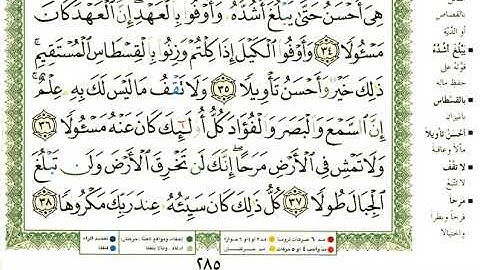 هِيَ أَحْسَنُ حَتَّىٰ يَبْلُغَ أَشُدَّهُۥ وَأَوْفُوا۟ بِٱلْعَهْدِ ۖ إِنَّ ٱلْعَهْدَ كَانَ
مَسْـُٔولًا ٣٤ وَأَوْفُوا۟ ٱلْكَيْلَ إِذَا كِلْتُمْ وَزِنُوا۟ بِٱلْقِسْطَاسِ ٱلْمُسْتَقِيمِ ۚ
ذَٰلِكَ خَيْرٌ وَأَحْسَنُ تَأْوِيلًا ٣٥ وَلَا تَقْفُ مَا لَيْسَ لَكَ بِهِۦ عِلْمٌ ۚ
إِنَّ ٱلسَّمْعَ وَٱلْبَصَرَ وَٱلْفُؤَادَ كُلُّ أُو۟لَـٰٓئِكَ كَانَ عَنْهُ مَسْـُٔولًا ٣٦
وَلَا تَمْشِ فِى ٱلْأَرْضِ مَرَحًا ۖ إِنَّكَ لَن تَخْرِقَ ٱلْأَرْضَ وَلَن تَبْلُغَ
ٱلْجِبَالَ طُولًا ٣٧ كُلُّ ذَٰلِكَ كَانَ سَيِّئُهُۥ عِندَ رَبِّكَ مَكْرُوهًا ٣٨
٢٨٥
بالقصاص
أو الدّية
يَبْلُغَ أَشُدَّهُ
قوّته على
حفظ ماله
بِالقِسْطاس
بالميزان
أحسنُ تأويلا
مآلا وعاقبة
لا تَقْفُ
لا تتّبع
مرحاً
فرحا وبطرا
واختيالا